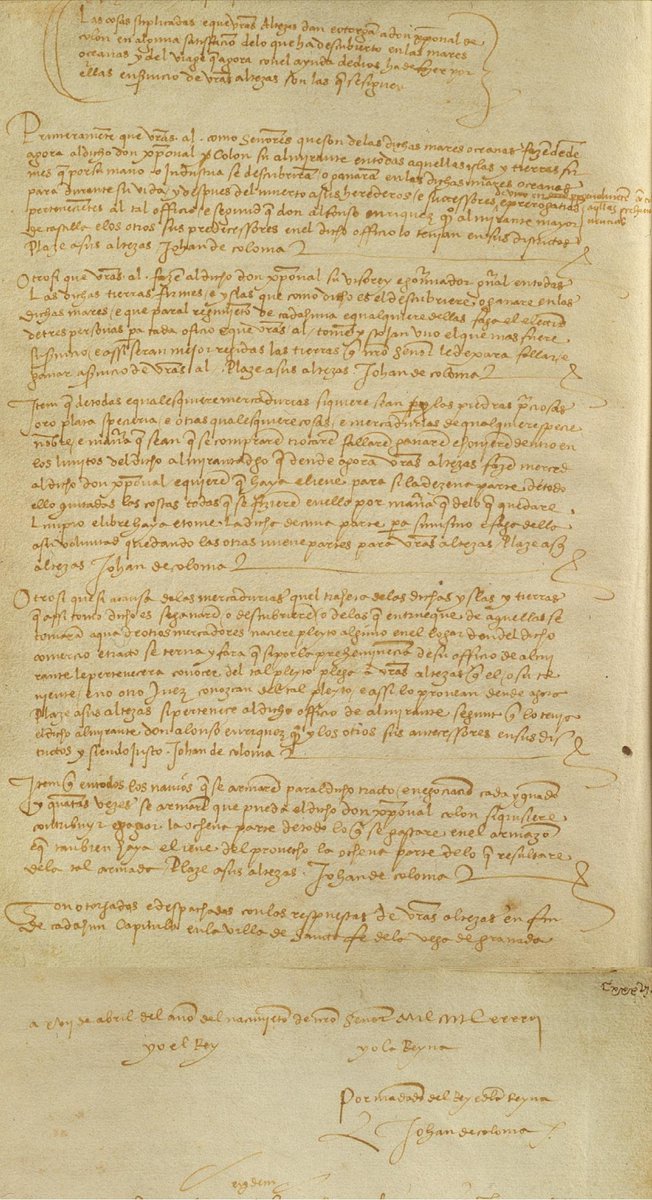 Las cosas suplicadas e que vras Altezas dan e otorgan a don xpoval de
colon en alguna satisfacion de lo que ha descubierto en las mares
oceanas y del viage q agora con el ayuda de dios ha de fazer por
ellas en seruicio de vras altezas son las q se siguen
Primeramete que vras al. como Senores que son de las dichas mares oceanas fazen dende
agora al dicho don xpoval Colon su almirante en todas aquellas islas y tierras fir
mes q por su mano o Industria se descubriran o ganaran en las dichas mares oceanas
para durante su vida y despues del muerto a sus herederos e sucessores de uno en
pertenecientes al tal officio e segund q don alfonso enrriquez q almirante mayor
de castilla e los otros sus predecessores en el dicho officio lo tenian en sus districtos
Plaze a sus altezas Johan de coloma
Otrosi que vras al. fazen al dicho don xpoval su visorey e governador gnal en todas
Las dichas tierras firmes e yslas que como dicho es el descubriere o ganare en las
dichas mares e que paral regimieto de cadahuna e qualquiere dellas faga el eleccio
de tres personas pa cada oficio e que vras al. tomen y scojan uno el que mas fuere
su seruicio e assi seran mejor regidas las tierras q nro Senor le dexara fallar e
ganar a seruicio de vras al. Plaze a sus altezas Johan de coloma
Item q de todas e qualesquiere mercadurias siquiere sean perlas piedras preciosas
oro plata specieria e otras qualesquiere cosas e mercadurias de qualquiere specie
nobre e manera q sean q se compraren trocaren fallaren ganaren e hovieren dentro en
los limites del dicho almirantadgo q dende agora vras altezas fazen merced
al dicho don xpoval e quieren q haya e lieve para si la dezena parte de todo
ello quitadas las costas todas q se fizieren en ello por manera q de lo q quedare
Limpio e libre haya e tome la dicha decima parte pa si mismo e faga dello
a su voluntad quedando las otras nueve partes para vras altezas Plaze a sus
altezas Johan de coloma
Otrosi que si a causa de las mercadurias quel trahera de las dichas yslas y tierras
q assi como dicho es se ganaren o descubrieren o de las q en trueque de aquellas se
tomaran aqua de otros mercadores naciere pleyto alguno en el logar don del dicho
comercio e tracto se terna y fara q si por la preheminencia de su officio de almi
rante le pertenecera conocer del tal pleyto plega a vras altezas q el o su te
niente e no otro Juez conozcan de tal pleyto e assi lo provean dende agora
Plaze a sus altezas si pertenece al dicho officio de almirante segunt q lo tenia
el dicho almirante don alonso enrriquez q y los otros sus antecessores en sus dis
trictos y siendo justo. Johan de coloma
Item q en todos los navios q se armaren paral dicho tracto e negociacio cada y quado
y quatas vezes se armaren que pueda el dicho don xpoval colon si quisiere
contribuyr e pagar la ochena parte de todo lo q se gastare en el armazon
E q tambien haya e lieve del provecho la ochena parte de lo q resultare
de la tal armada Plaze a sus altezas. Johan de coloma
Son otorgadas e despachadas con las respuestas de vras altezas en fin
de cadahun Capitulo en la villa de Sancta fe de la vega de granada
a xvii de abril del año del nacimieto de nro Senor Mil
yo el Rey yo la Reyna
Por mandado del Rey e de la Reyna
Johan de coloma